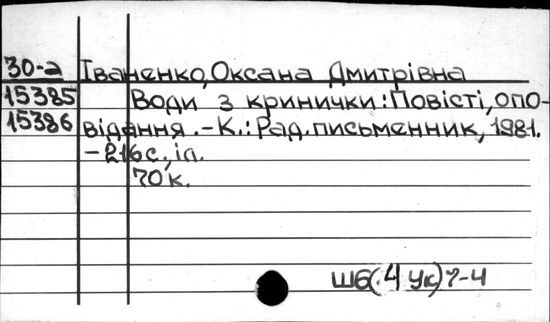 30-а Іваненко, Оксана Дмитрівна
15385 Води з кринички: Повісті, опо-
15386 відання. – К.: Рад. письменник, 1981.
– 216 с., іл.
70 к.
Ш6(.4 Ук)7-4